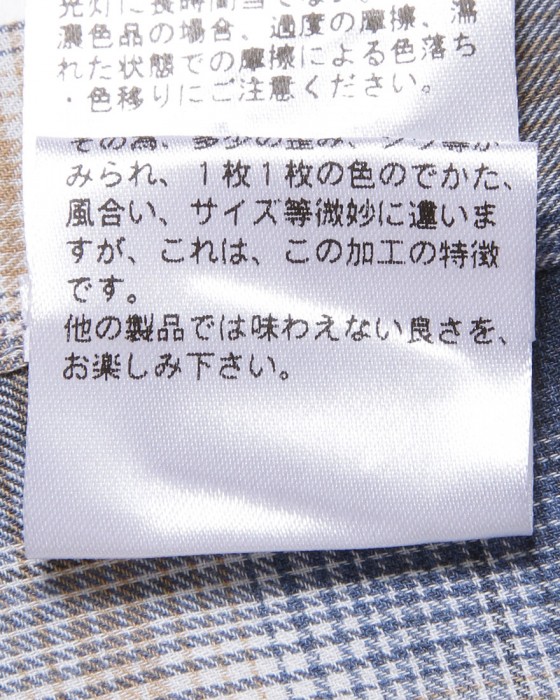 濃色品の場合、過度の摩擦、濡
れた状態での摩擦による色落ち
・色移りにご注意ください。
その為、多少の歪み、シワ等が
みられ、１枚１枚の色のでかた、
風合い、サイズ等微妙に違いま
すが、これは、この加工の特徴
です。
他の製品では味わえない良さを、
お楽しみ下さい。